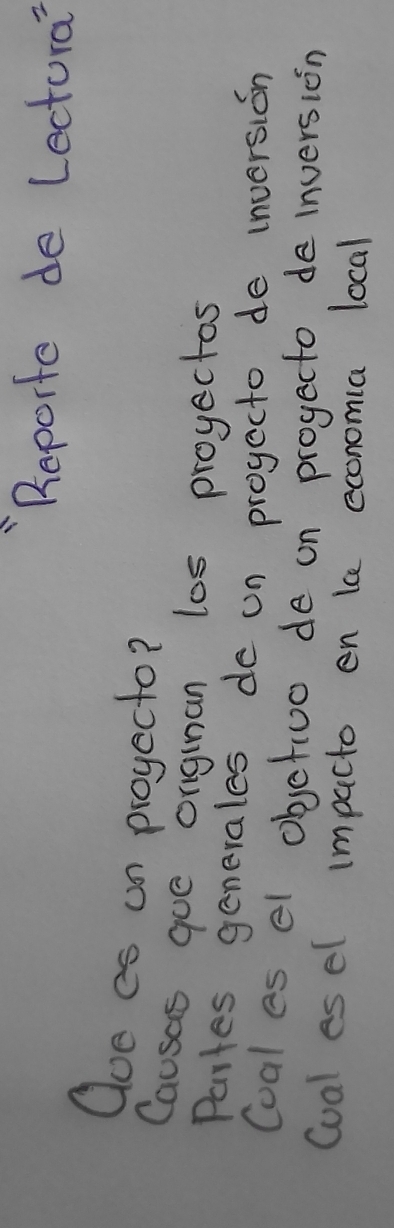 "Reporte de Lectura"
Que es un proyecto?
Causas que originan los proyectos
Partes generales de un proyecto de inversión
Cual es el objetivo de un proyecto de inversión
Cual es el impacto en la economia local